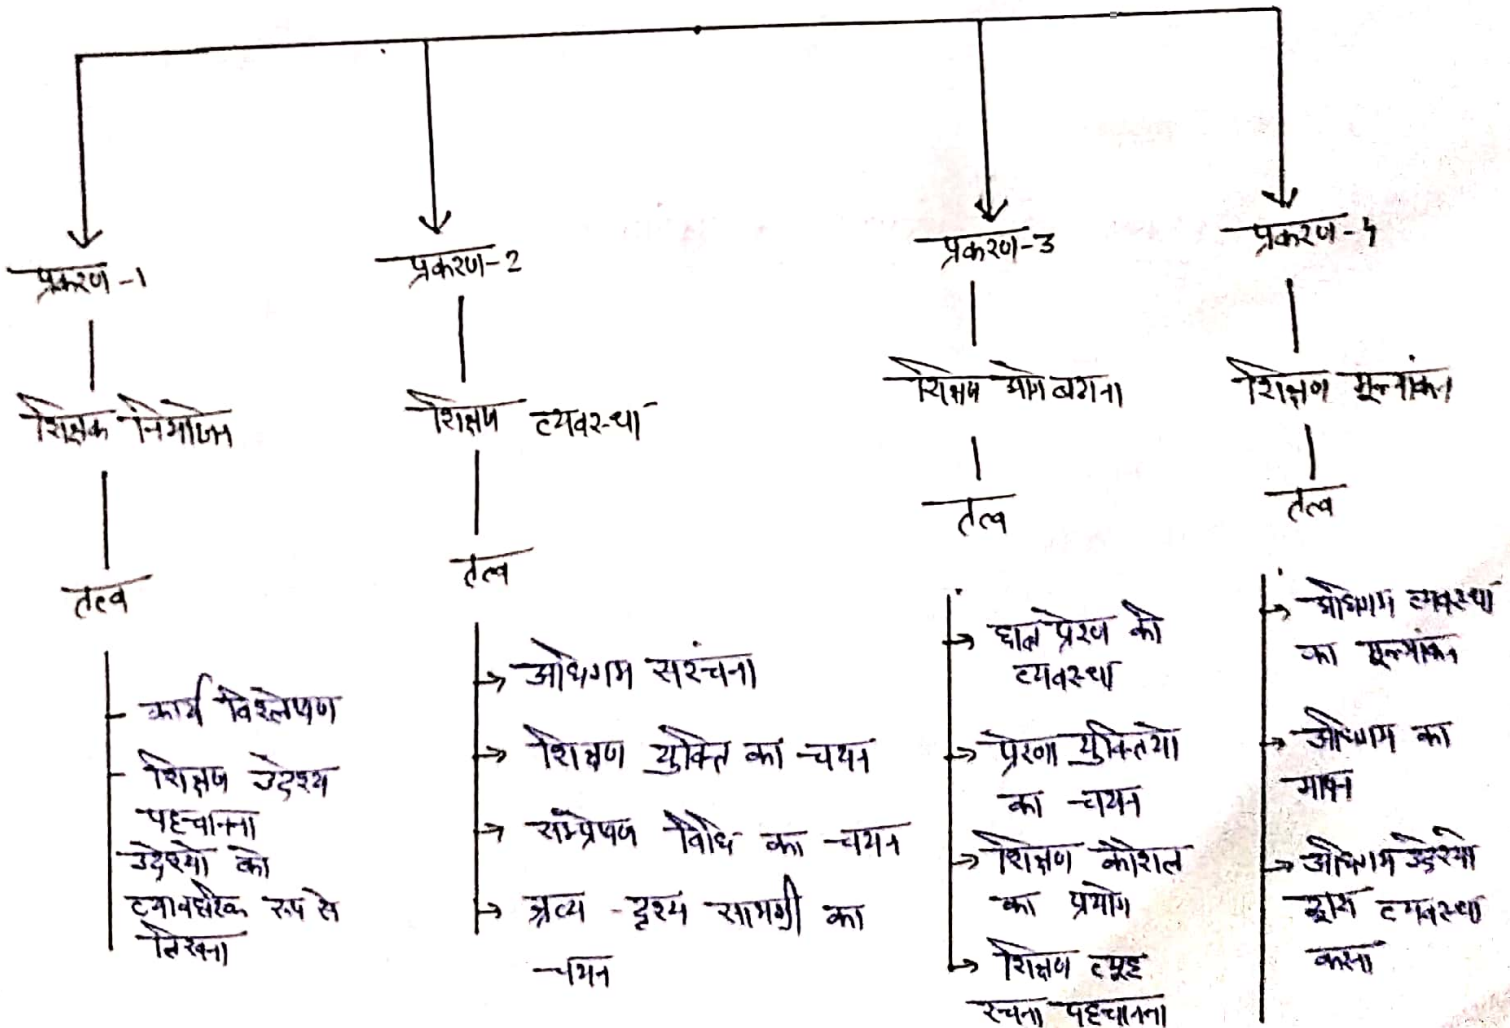 प्रकरण-1
शिक्षक नियोजन
तत्व
कार्य विश्लेषण
शिक्षण उद्देश्य
पहचानना
उद्देश्यो को
व्यावहारिक रूप से
लिखना
प्रकरण-2
शिक्षण व्यवस्था
तत्व
अधिगम सरंचना
शिक्षण युक्ति का चयन
सम्प्रेषण विधि का चयन
श्रव्य-दृश्य सामग्री का
चयन
प्रकरण-3
शिक्षण
तत्व
छात्र प्रेरण की
व्यवस्था
प्रेरणा युक्तियो
का चयन
शिक्षण कौशल
का प्रयोग
शिक्षण व्यूह
रचना पहचानना
प्रकरण-4
शिक्षण मूल्यांकन
तत्व
अधिगम व्यवस्था
का मूल्यांकन
अधिगम का
मापन
अधिगम उद्देश्यो
द्वारा व्यवस्था
करना